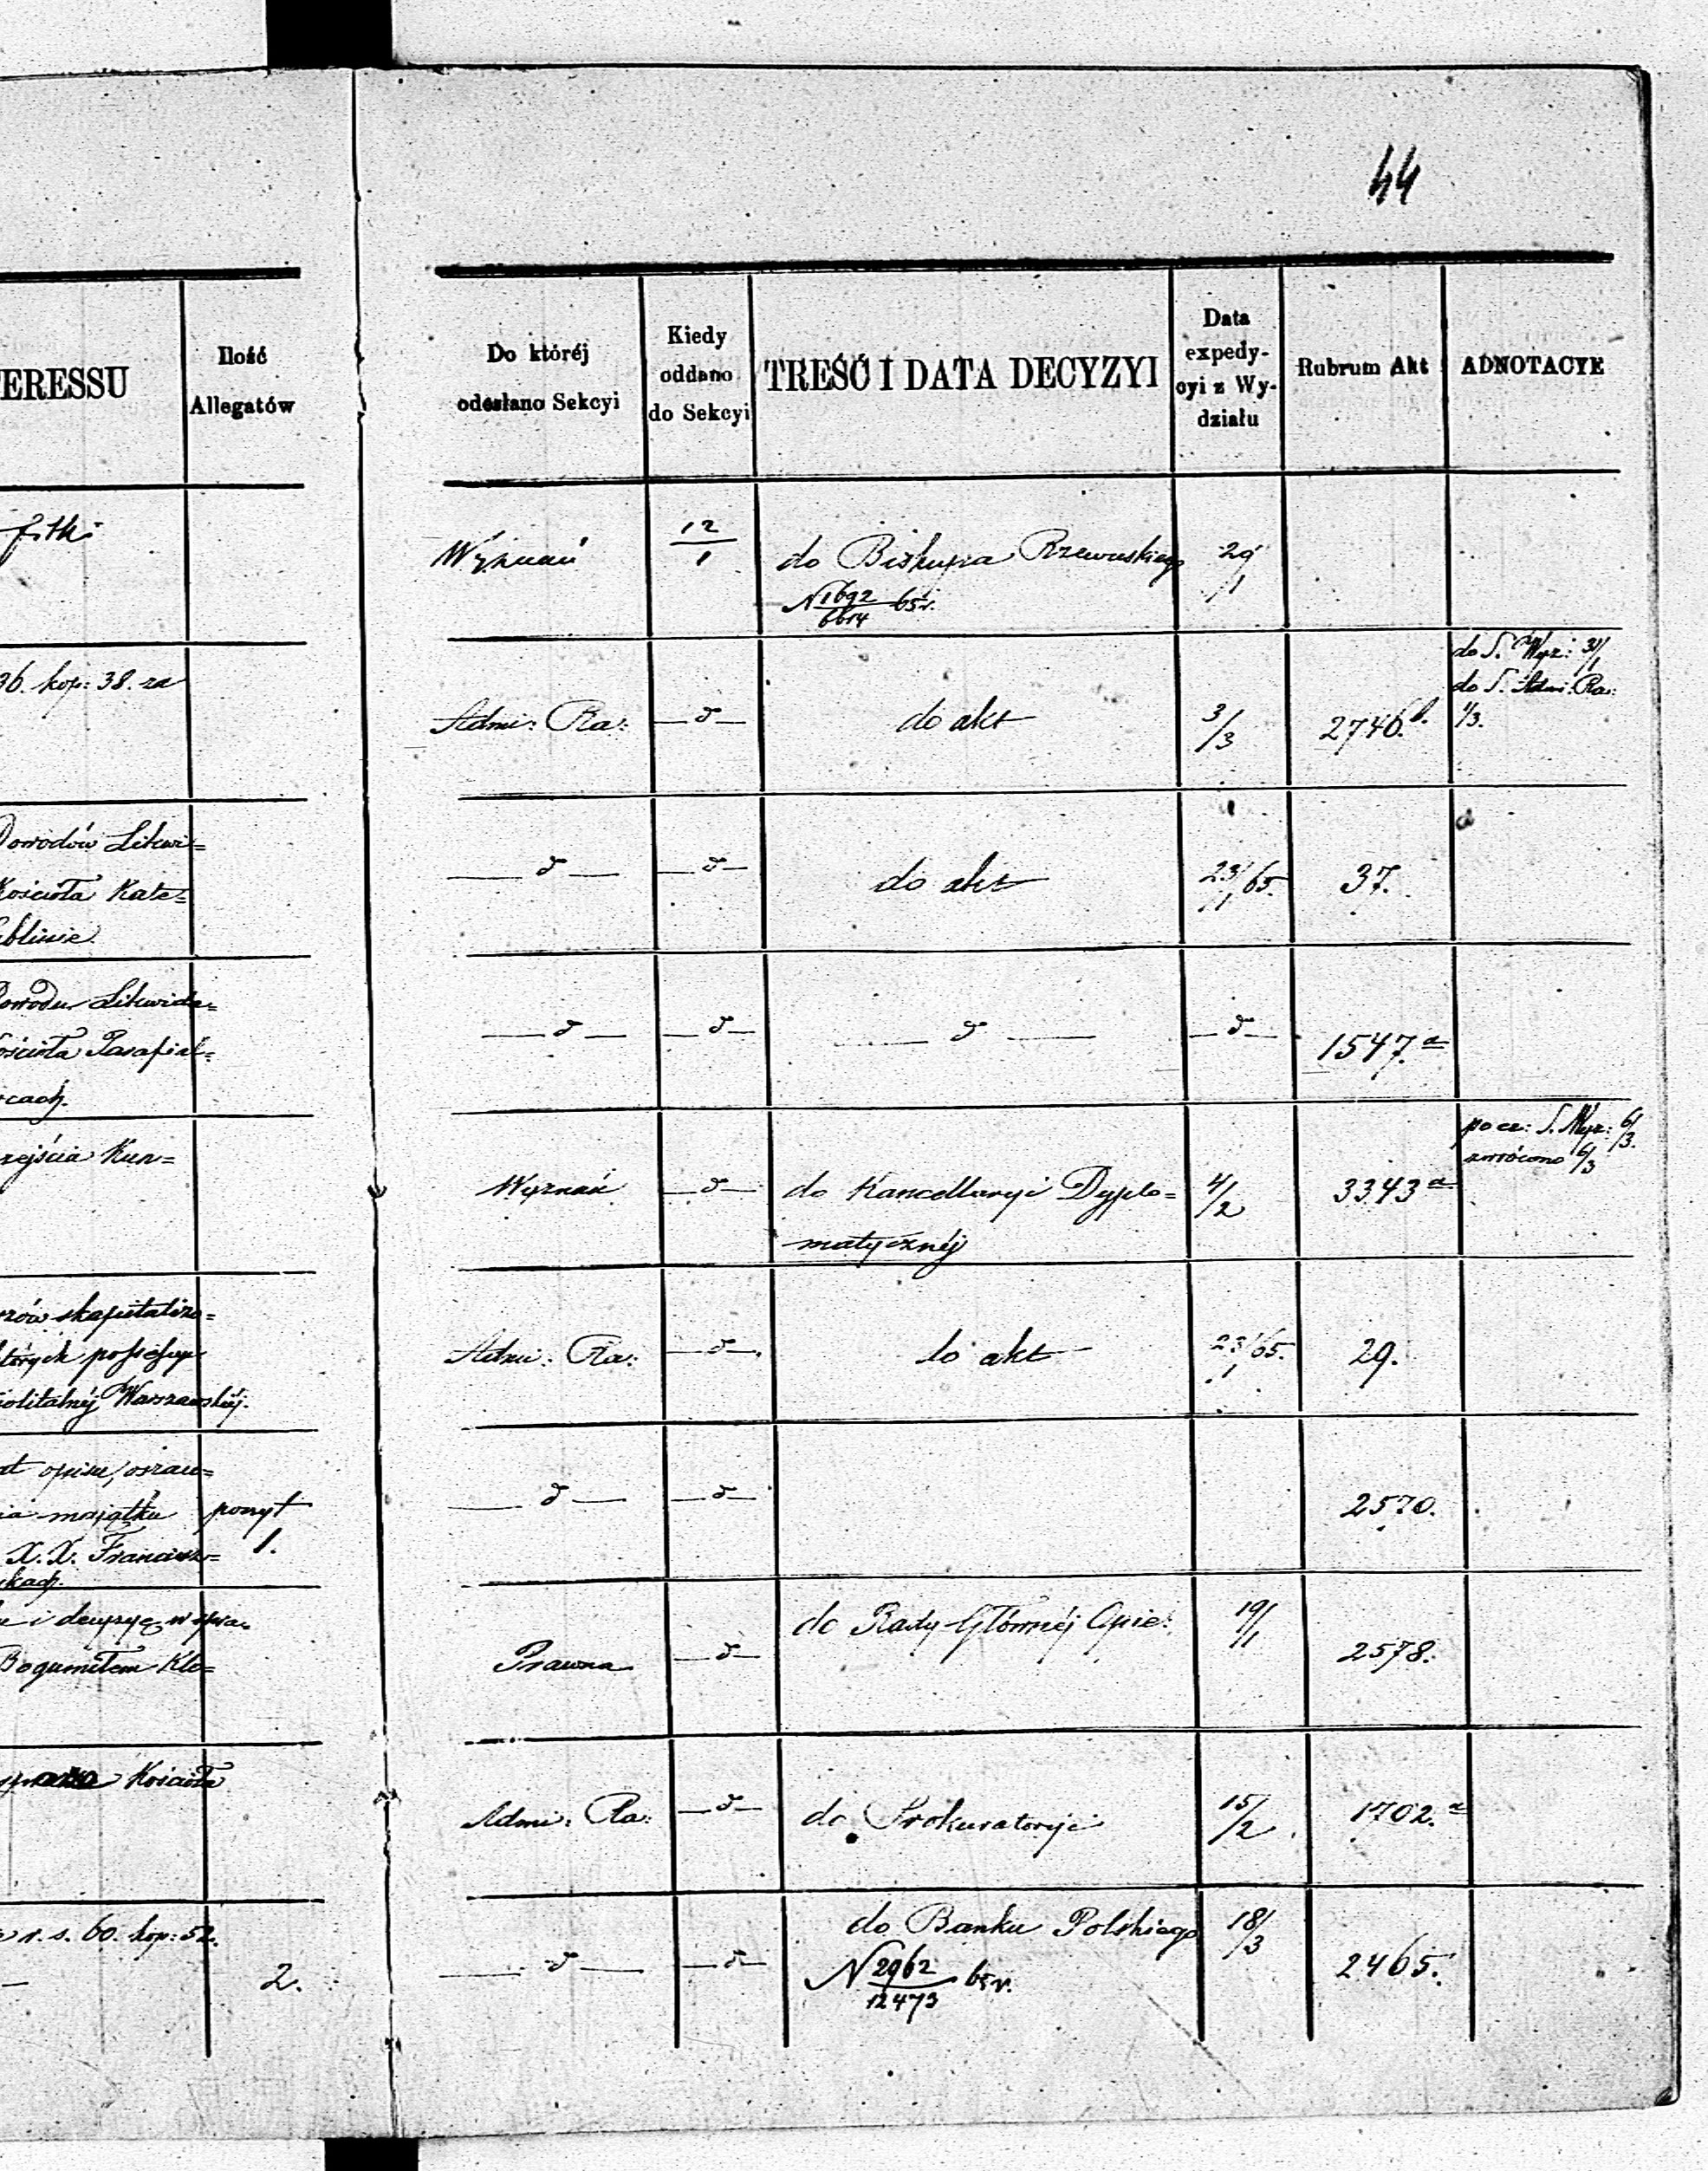 44
ERESSU
Ilość
Allegatów
Do któréj
odesłano Sekcyi
Kiedy
oddano
do Sekcyi
TREŚĆ I DATA DECYZYI
Data
expedy-
cyi z Wy-
działu
Rubrum Akt
ADNOTACYE
Wyznań
12/1
do Biskupa Rzewuskiego
29/1
N 1692/6614 65 r.
36. kop: 38. za
Admi: Ra:
—d—
do akt
3/3
2746.b.
do S. Wyz: 31/1
do S. Admi: Ra:
1/3.
Dowodów Likwi=
Kościoła Kate=
ublinie.
—d—
—d—
do akt
23/1 65.
37.
Dowodu Likwida=
ościoła Parafial=
cach.
—d—
—d—
—d—
—d—
1547.a
zejścia Kun=
Wyznań
—d—
do Kancellaryi Dyplo=
matycznéj
4/2
3343 a
po cz: S. Wyz: 6/3.
zwrócono 6/3
rzów skapitalizo=
których possessye
politalnéj Warszawskiéj.
Admi: Ra:
—d—
do akt
23/1 65.
29.
at opisu, oszau=
ia majątku
X. X. Francisz=
kach.
poszyt
1.
—d—
—d—
2570.
i decyzyę w spra=
Bogumiłem Kło=
Prawna
—d—
do Rady Głównéj Opie:
19/1
2578.
Kościoła
Admi: Ra:
—d—
do Prokuratoryi
15/2
1702.a
r. s. 60. kop: 52.
2.
—d—
—d—
do Banku Polskiego
N 2962/12473 65 r.
18/3
2465.